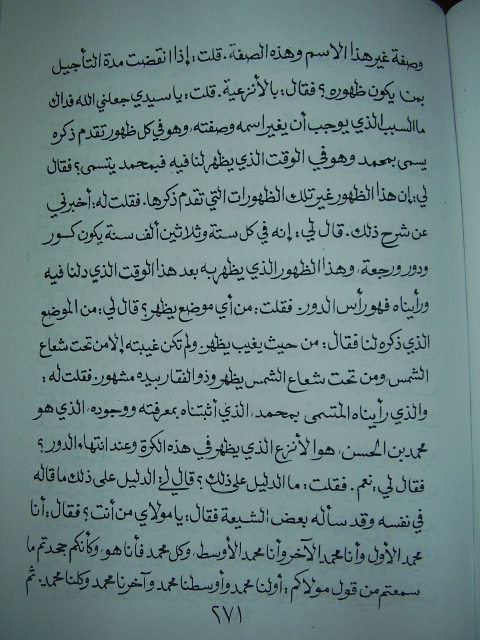 وصفة غير هذا الاسم وهذه الصفة. قلت: إذا انقضت مدة التأجيل
بمن يكون ظهوره؟ فقال: بالأنزعية. قلت: يا سيدي جعلني الله فداك
ما السبب الذي يوجب أن يغير اسمه وصفته، وهو في كل ظهور تقدم ذكره
يسمى بمحمد وهو في الوقت الذي يظهر لنا فيه فبمحمد يتسمى؟ فقال
لي: إن هذا الظهور غير تلك الظهورات التي تقدم ذكرها. فقلت له: أخبرني
عن شرح ذلك. قال لي: إنه في كل ستة وثلاثين ألف سنة يكون كسور
ودور ورجعة، وهذا الظهور الذي يظهر به بعد هذا الوقت الذي دلنا فيه
ورأيناه فهو رأس الدور. فقلت: من أي موضع يظهر؟ قال لي: من الموضع
الذي ذكره لنا فقال: من حيث يغيب يظهر. ولم تكن غيبته إلا من تحت شعاع
الشمس ومن تحت شعاع الشمس يظهر وذو الفقار بيده مشهور. فقلت له:
والذي رأيناه المتسمى بمحمد، الذي أثبتناه بمعرفته ووجوده، الذي هو
محمد بن الحسن، هو الأنزع الذي يظهر في هذه الكرة وعند انتهاء الدور؟
فقال لي: نعم. فقلت: ما الدليل على ذلك؟ قال لي: الدليل على ذلك ما قاله
في نفسه وقد سأله بعض الشيعة فقال: يا مولاي من أنت؟ فقال: أنا
محمد الأول وأنا محمد الآخر وأنا محمد الأوسط، وكل محمد فأنا هو، وكأنكم جحدتم ما
سمعتم من قول مولاكم: أولنا محمد وأوسطنا محمد وآخرنا محمد وكلنا محمد. ثم
٢٧١